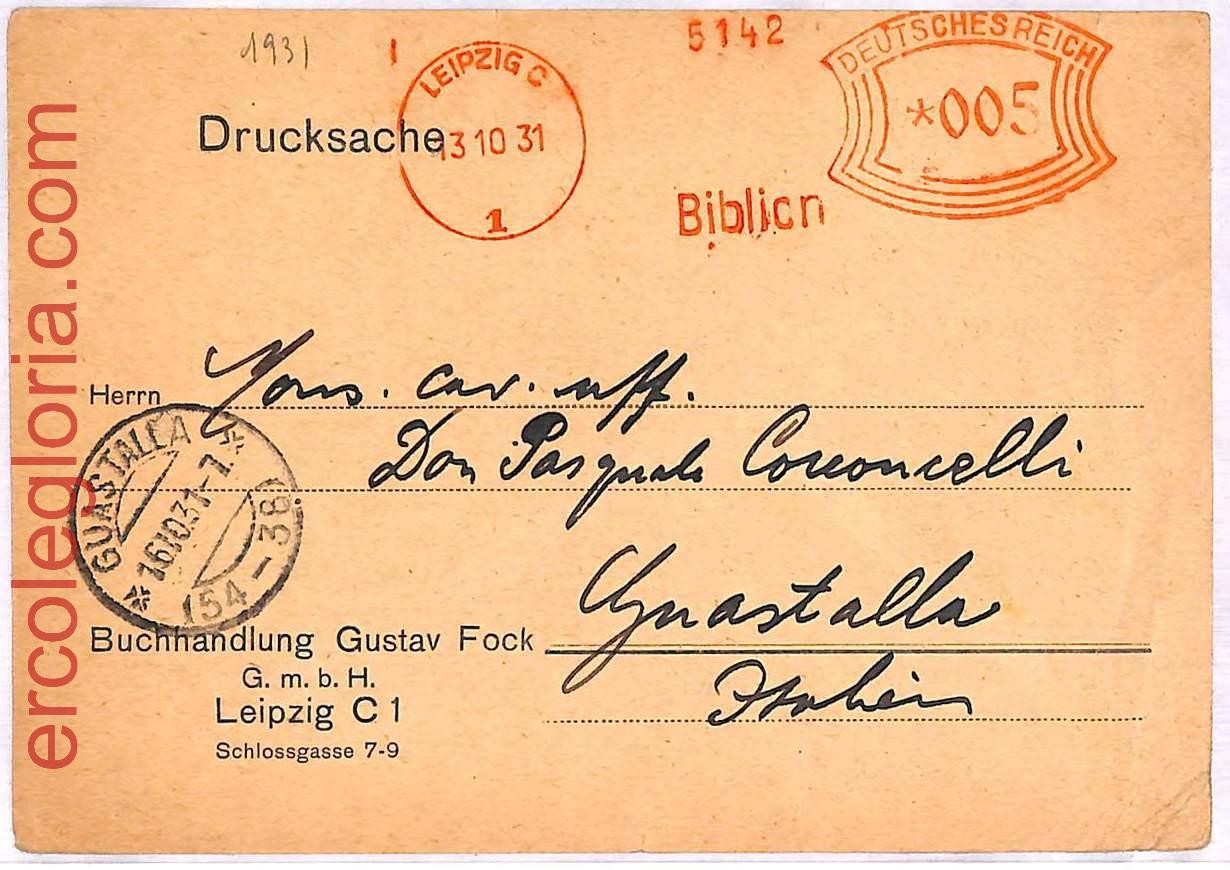 1931
5142
DEUTSCHES REICH
*005
LEIPZIG C
13 10 31
1
Drucksache
Biblion
Herrn Mons. cav. uff.
Don Pasquale
GUASTALLA
16 10 31-7
(54-38)
Guastalla
Buchhandlung Gustav Fock
G. m. b. H.
Italien
Leipzig C 1
Schlossgasse 7-9
ercolegloria.com